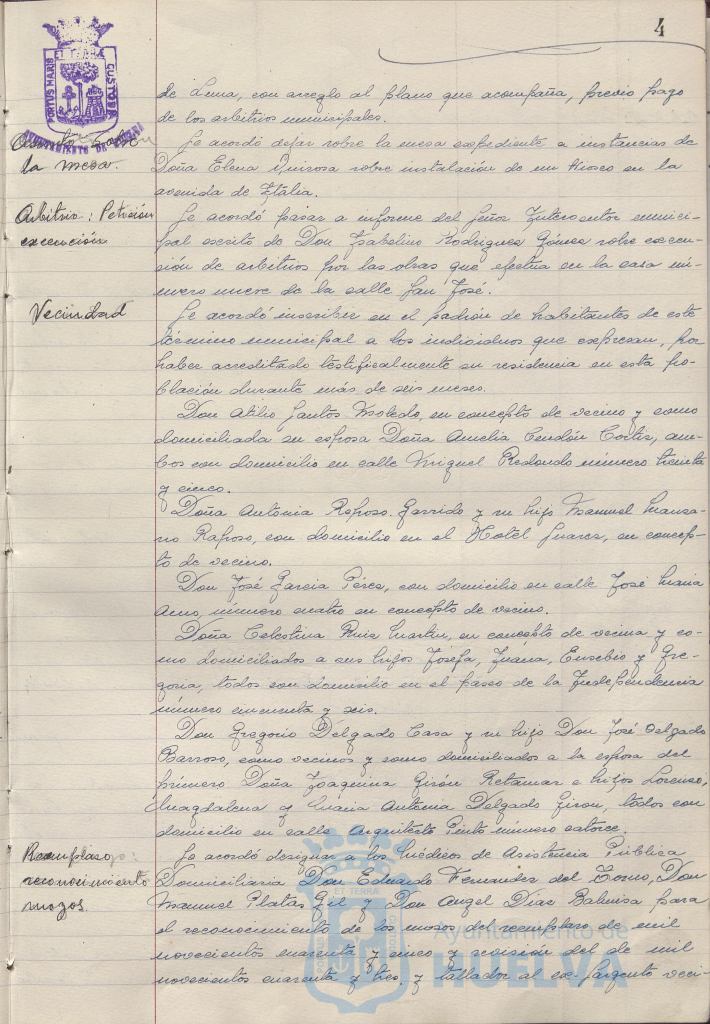 4
PORTUS MARIS
ET TERRAE
CUSTODIA
AYUNTAMIENTO DE
de Luna, con arreglo al plano que acompaña, previo pago
de los arbitrios municipales.
Asunto sobre
la mesa.
Se acordó dejar sobre la mesa expediente a instancias de
Doña Elena Quirosa sobre instalación de un Kiosco en la
avenida de Italia.
Arbitrio: Petición
excención
Se acordó pasar a informe del Señor Interventor munici-
pal escrito de Don Isabelino Rodriguez Gómez sobre excen-
sión de arbitrios por las obras que efectua en la casa nú-
mero nueve de la calle San José.
Vecindad
Se acordó inscribir en el padrón de habitantes de este
término municipal a los individuos que expresan, por
haber acreditado testificalmente su residencia en esta po-
blación durante más de seis meses.
Don Atilio Santos Moledo, en concepto de vecino y como
domiciliada su esposa Doña Amelia Cendón Cortis, am-
bos con domicilio en calle Miguel Redondo número treinta
y cinco.
Doña Antonia Raposo Garrido y su hijo Manuel Manza-
no Raposo, con domicilio en el Hotel Suarez, en concep-
to de vecino.
Don José Garcia Pérez, con domicilio en calle José Maria
Amo, número cuatro en concepto de vecino.
Doña Celestina Ruiz Martin, en concepto de vecina y co-
mo domiciliados a sus hijos Josefa, Juana, Eusebio y Gre-
goria, todos con domicilio en el paseo de la Independencia
número cincuenta y seis.
Don Gregorio Delgado Casa y su hijo Don José Delgado
Barroso, como vecinos y como domiciliados a la esposa del
primero Doña Joaquina Girón Retamar e hijos Lorenzo,
Magdalena y Maria Antonia Delgado Giron, todos con
domicilio en calle Arquitecto Pinto número catorce.
Reemplazo:
reconocimiento
mozos.
Se acordó designar a los Médicos de Asistencia Pública
Domiciliaria Don Eduardo Fernandez del Torno, Don
Manuel Platas Gil y Don Angel Diaz para
el reconocimiento de los mozos del reemplazo de mil
novecientos cuarenta y cinco y revisión del de mil
novecientos cuarenta y tres, y tallador al ex-sargento veci-
Ayuntamiento de
HUELVA